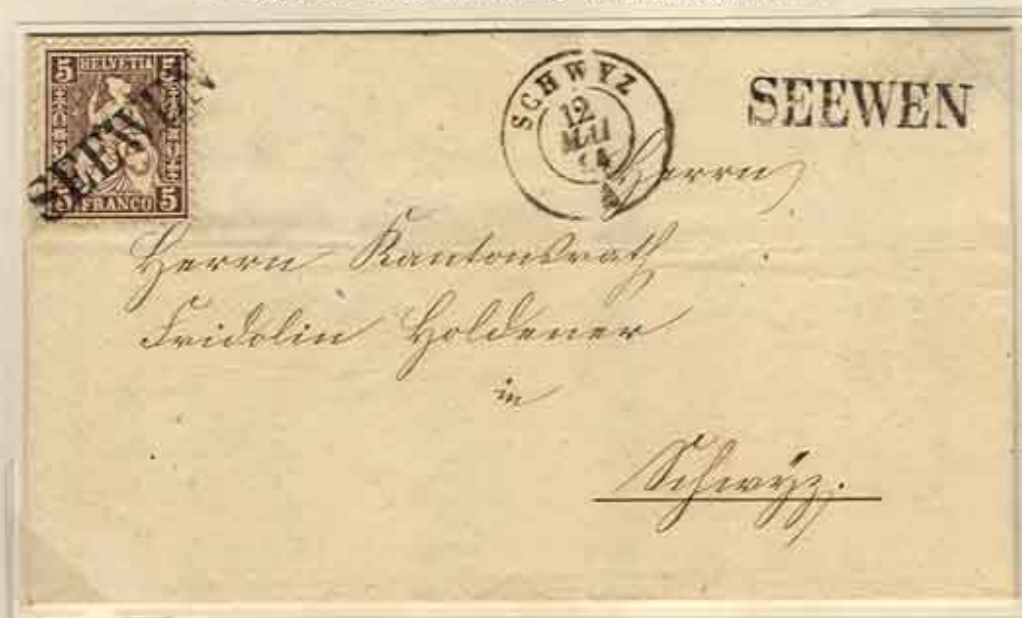 5 HELVETIA 5
SEEWEN
5 FRANCO 5
SCHWYZ
12
MAI
SEEWEN
Herrn
Herrn Kantonsrath
Fridolin Holdener
in
Schwÿz.